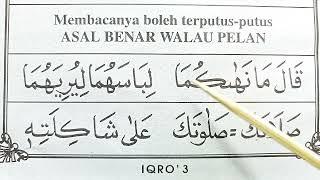 Membacanya boleh terputus-putus
ASAL BENAR WALAU PELAN
قَالَ مَا نَهٰىكُمَا لِبَاسَهُمَا لِيُرِيَهُمَا
صَلَاتَكَ = صَلٰوتَكَ عَلٰى شَاكِلَتِهٖ
IQRO' 3